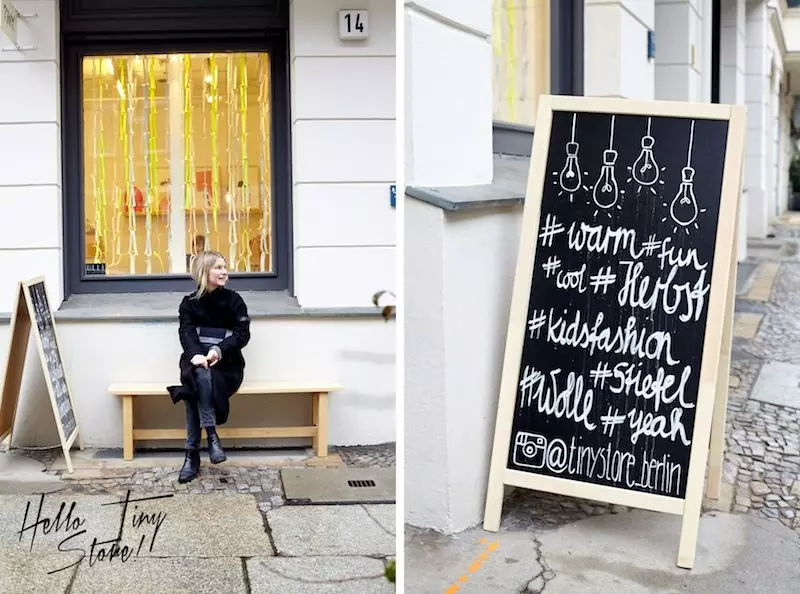 14
Hello Tiny
Store!!
# warm #fun
#cool #Herbst
#kidsfashion
#Stiefel
#Wolle #yeah
@tinystore_berlin